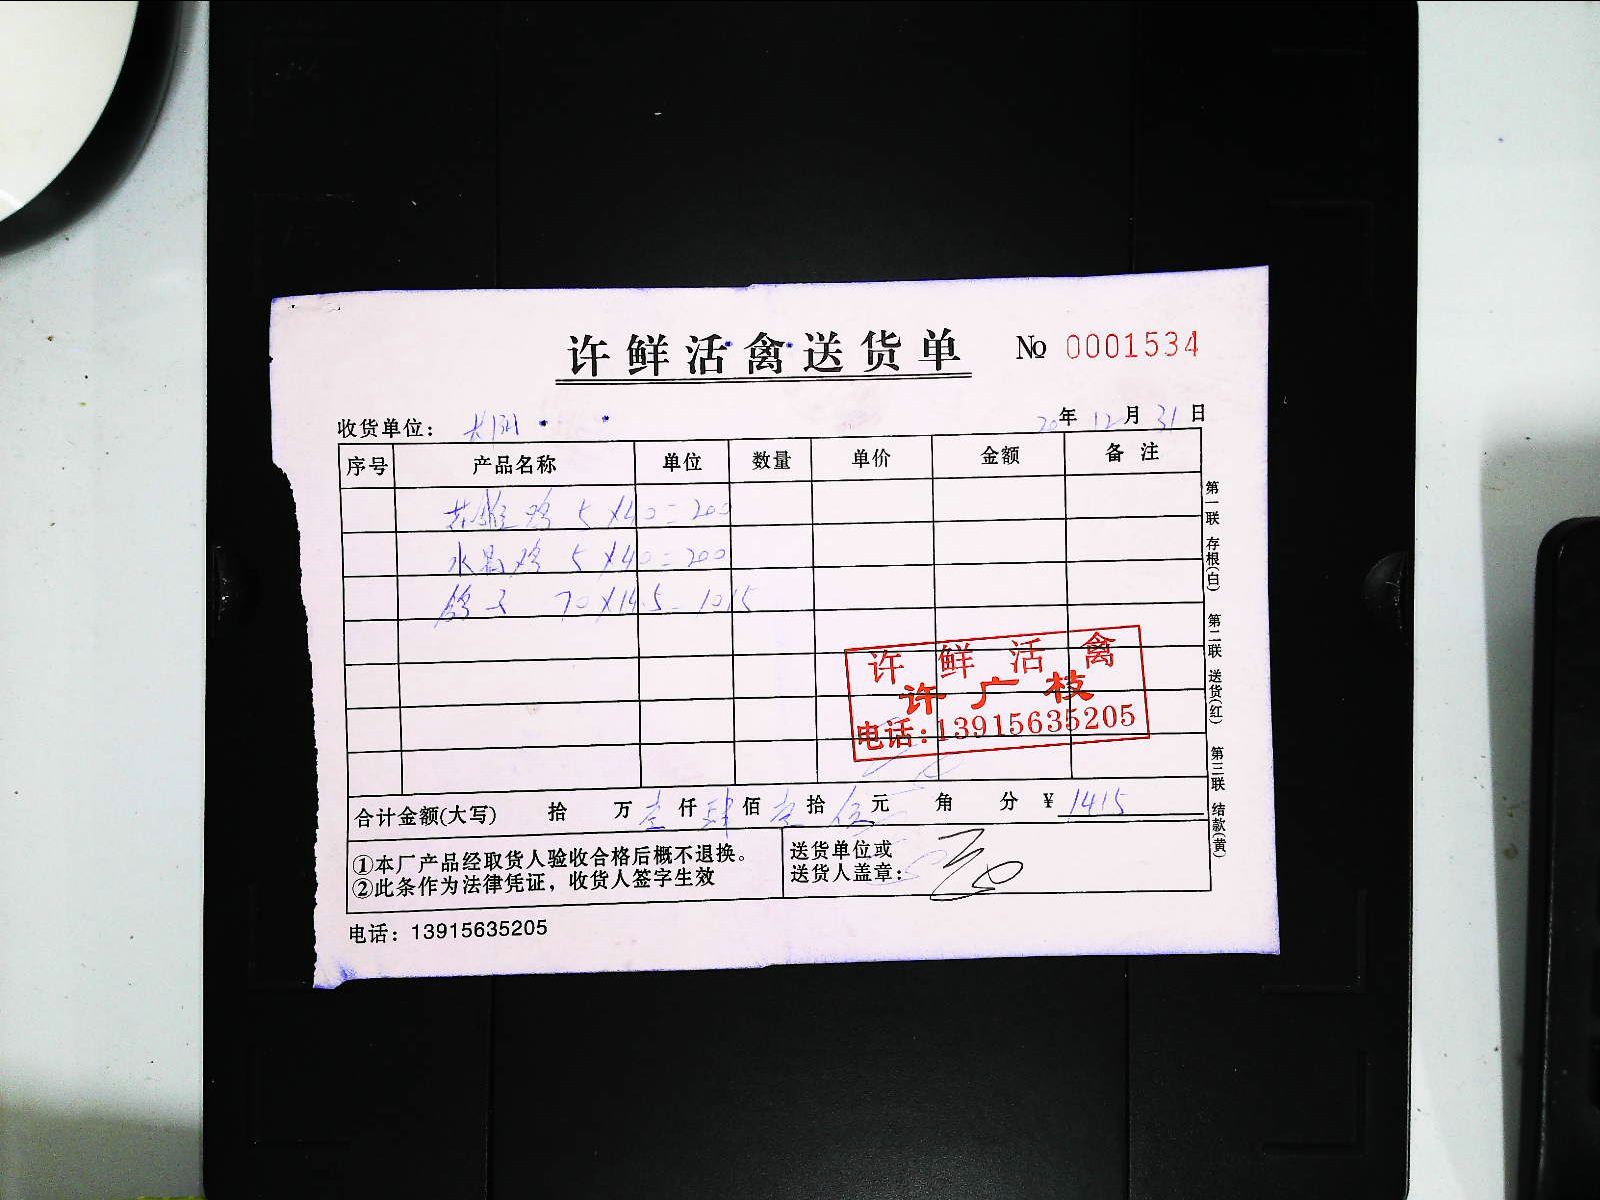 许鲜活禽送货单 № 0001534
收货单位： 20年12月31日
序号 产品名称 单位 数量 单价 金额 备注
鸡 5×40=200
水晶鸡 5×40=200
鸽子 70×14.5=1015
许鲜活禽
许广枝
电话:13915635205
合计金额(大写) 拾 万壹仟肆佰壹拾伍元 角 分 ¥ 1415
①本厂产品经取货人验收合格后概不退换。
②此条作为法律凭证，收货人签字生效
送货单位或
送货人盖章:
电话：13915635205
第一联 存根(白) 第二联 送货(红) 第三联 结款(黄)